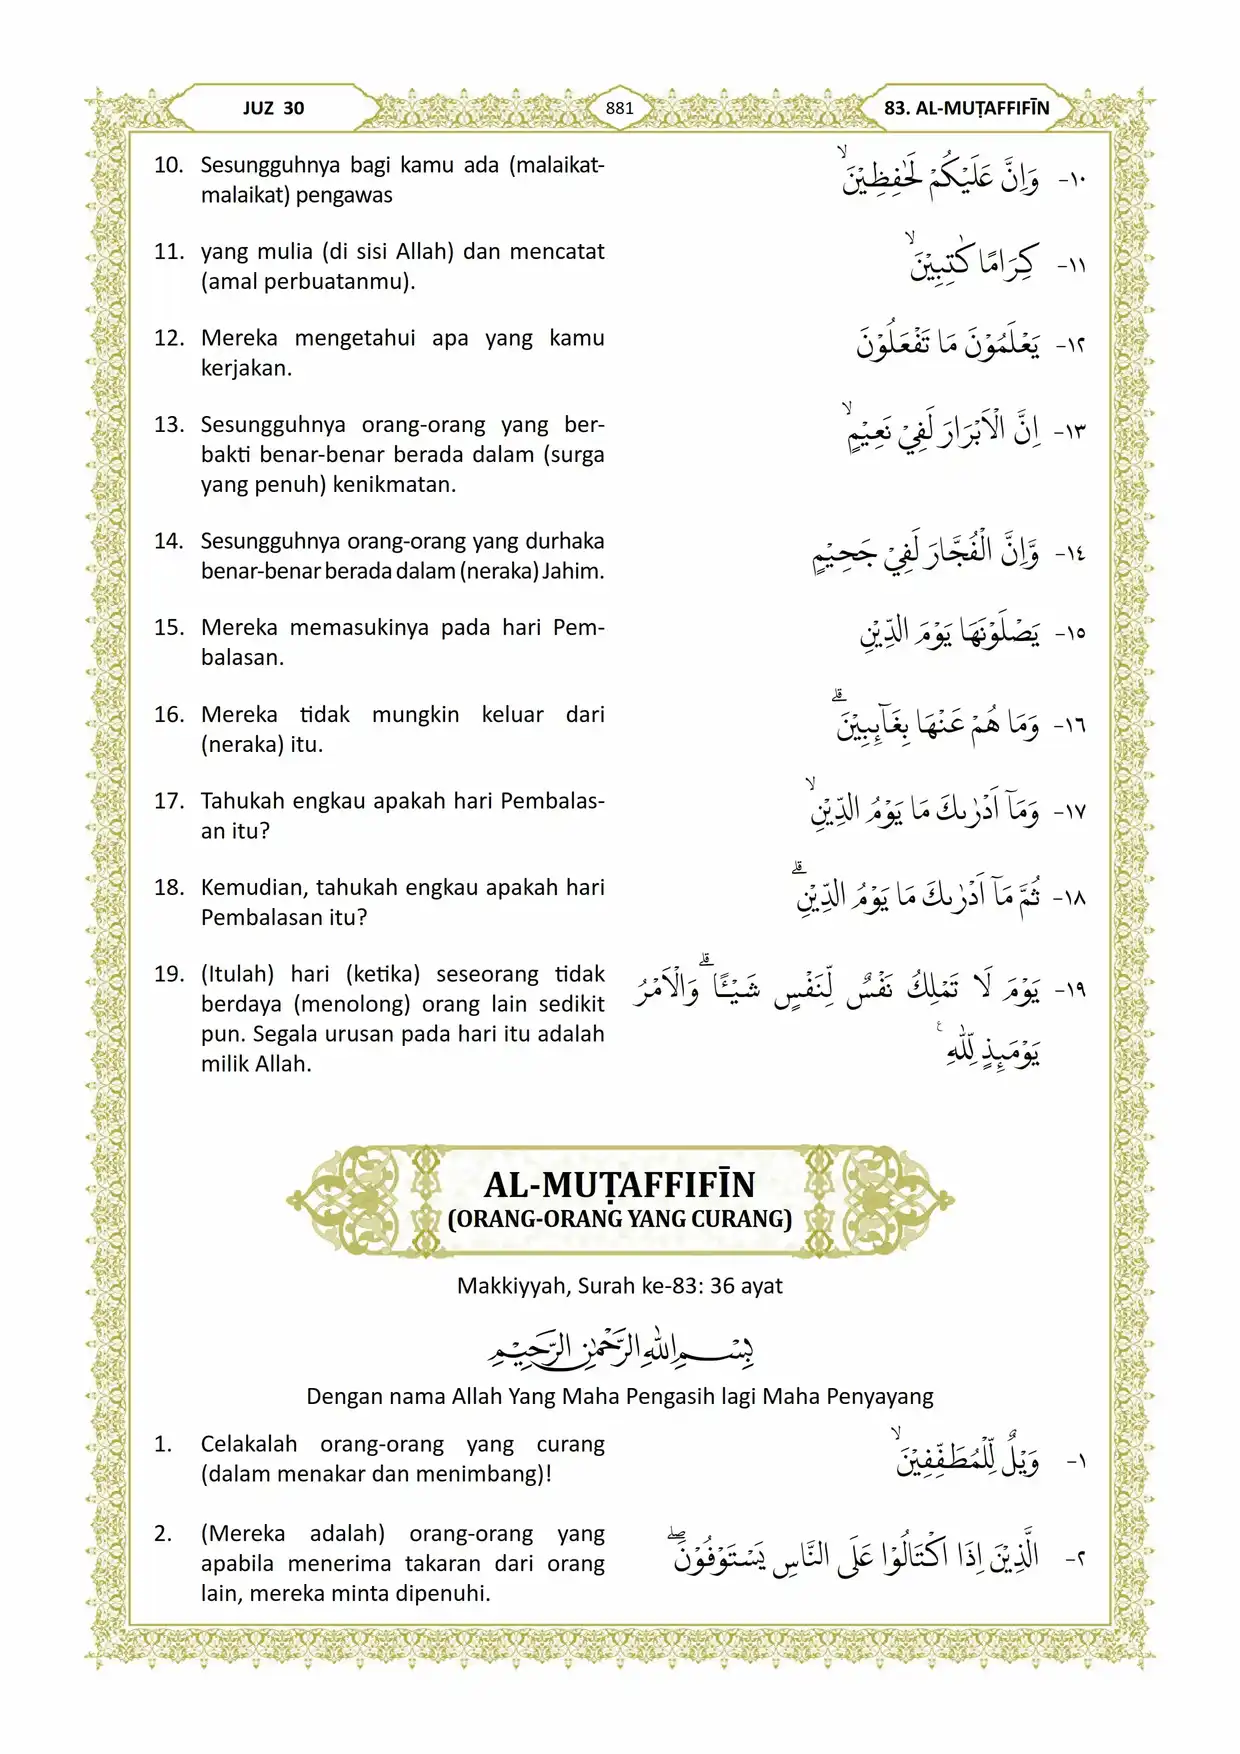 JUZ 30
881
83. AL-MUṬAFFIFĪN
10. Sesungguhnya bagi kamu ada (malaikat-
malaikat) pengawas
١٠- وَاِنَّ عَلَيْكُمْ لَحٰفِظِيْنَۙ
11. yang mulia (di sisi Allah) dan mencatat
(amal perbuatanmu).
١١- كِرَامًا كٰتِبِيْنَۙ
12. Mereka mengetahui apa yang kamu
kerjakan.
١٢- يَعْلَمُوْنَ مَا تَفْعَلُوْنَ
13. Sesungguhnya orang-orang yang ber-
bakti benar-benar berada dalam (surga
yang penuh) kenikmatan.
١٣- اِنَّ الْاَبْرَارَ لَفِيْ نَعِيْمٍۙ
14. Sesungguhnya orang-orang yang durhaka
benar-benar berada dalam (neraka) Jahim.
١٤- وَّاِنَّ الْفُجَّارَ لَفِيْ جَحِيْمٍ
15. Mereka memasukinya pada hari Pem-
balasan.
١٥- يَصْلَوْنَهَا يَوْمَ الدِّيْنِ
16. Mereka tidak mungkin keluar dari
(neraka) itu.
١٦- وَمَا هُمْ عَنْهَا بِغَاۤىِٕبِيْنَۗ
17. Tahukah engkau apakah hari Pembalas-
an itu?
١٧- وَمَآ اَدْرٰىكَ مَا يَوْمُ الدِّيْنِۙ
18. Kemudian, tahukah engkau apakah hari
Pembalasan itu?
١٨- ثُمَّ مَآ اَدْرٰىكَ مَا يَوْمُ الدِّيْنِۗ
19. (Itulah) hari (ketika) seseorang tidak
berdaya (menolong) orang lain sedikit
pun. Segala urusan pada hari itu adalah
milik Allah.
١٩- يَوْمَ لَا تَمْلِكُ نَفْسٌ لِّنَفْسٍ شَيْـًٔاۗ وَالْاَمْرُ
يَوْمَىِٕذٍ لِّلّٰهِ ࣖ
AL-MUṬAFFIFĪN
(ORANG-ORANG YANG CURANG)
Makkiyyah, Surah ke-83: 36 ayat
بِسْمِ اللّٰهِ الرَّحْمٰنِ الرَّحِيْمِ
Dengan nama Allah Yang Maha Pengasih lagi Maha Penyayang
1. Celakalah orang-orang yang curang
(dalam menakar dan menimbang)!
١- وَيْلٌ لِّلْمُطَفِّفِيْنَۙ
2. (Mereka adalah) orang-orang yang
apabila menerima takaran dari orang
lain, mereka minta dipenuhi.
٢- الَّذِيْنَ اِذَا اكْتَالُوْا عَلَى النَّاسِ يَسْتَوْفُوْنَۖ